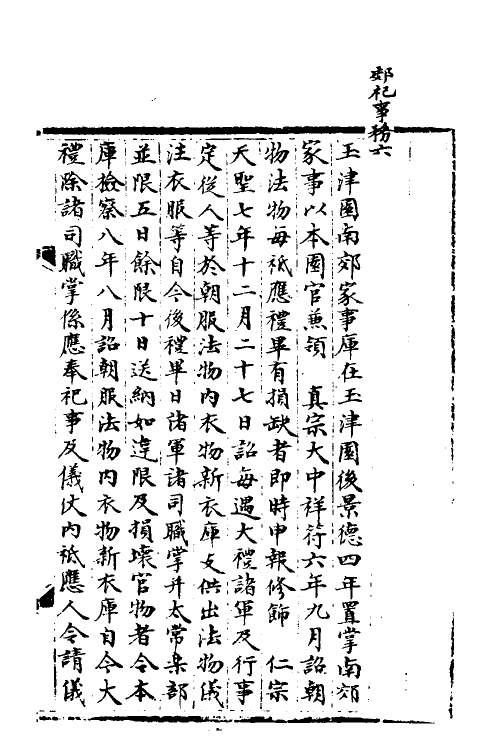 郊祀事務六
玉津園南郊家事庫在玉津園後景德四年置掌南郊
家事以本園官兼領　真宗大中祥符六年九月詔朝
物法物每祗應禮畢有損缺者即時申報修飾　仁宗
天聖七年十二月二十七日詔每遇大禮諸軍及行事
定從人等於朝服法物內衣物新衣庫支供出法物儀
注衣服等自今後禮畢日諸軍諸司職掌并太常樂部
並限五日餘限十日送納如違限及損壞官物者令本
庫檢察八年八月詔朝服法物內衣物新衣庫自今大
禮除諸司職掌係應奉祀事及儀仗內祗應人令請儀